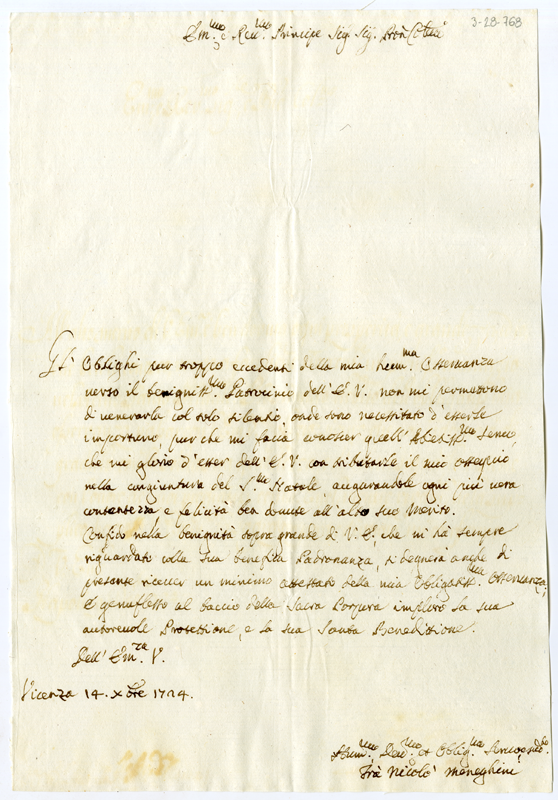 3-28-768
Em.mo e Rev.mo Principe Sig.r Sig.r Pron Col.mo
Gl' Oblighi pur troppo eccedenti della mia hum.ma Osservanza
verso il benigniss.mo Patrocinio dell' E. V. non mi permettono
di venerarla col solo silentio, onde sono necessitato d'esserle
importuno, pur che mi facia conoscer quell' Obligatiss.mo Servo,
che mi glorio d'esser dell' E. V. con tributarle il mio ossequio
nella congiuntura del S.mo Natale, augurandole ogni più vera
contentezza e felicità ben dovute all'alto suo Merito.
Confido nella benignità sopra grande di V. E., che mi hà sempre
riguardato colla sua benefica Padronanza, si degnerà anche di
presente ricever un minimo attestato della mia Obligatiss.ma Osservanza;
E genuflesso al baccio della Sacra Porpora imploro la sua
autorevole Protettione, e la sua Santa Benedittione.
Dell' Em.za V.
Vicenza 14. Xbre 1724.
Hum.mo Dev.mo et Oblig.mo
Frà Nicolò Meneghini